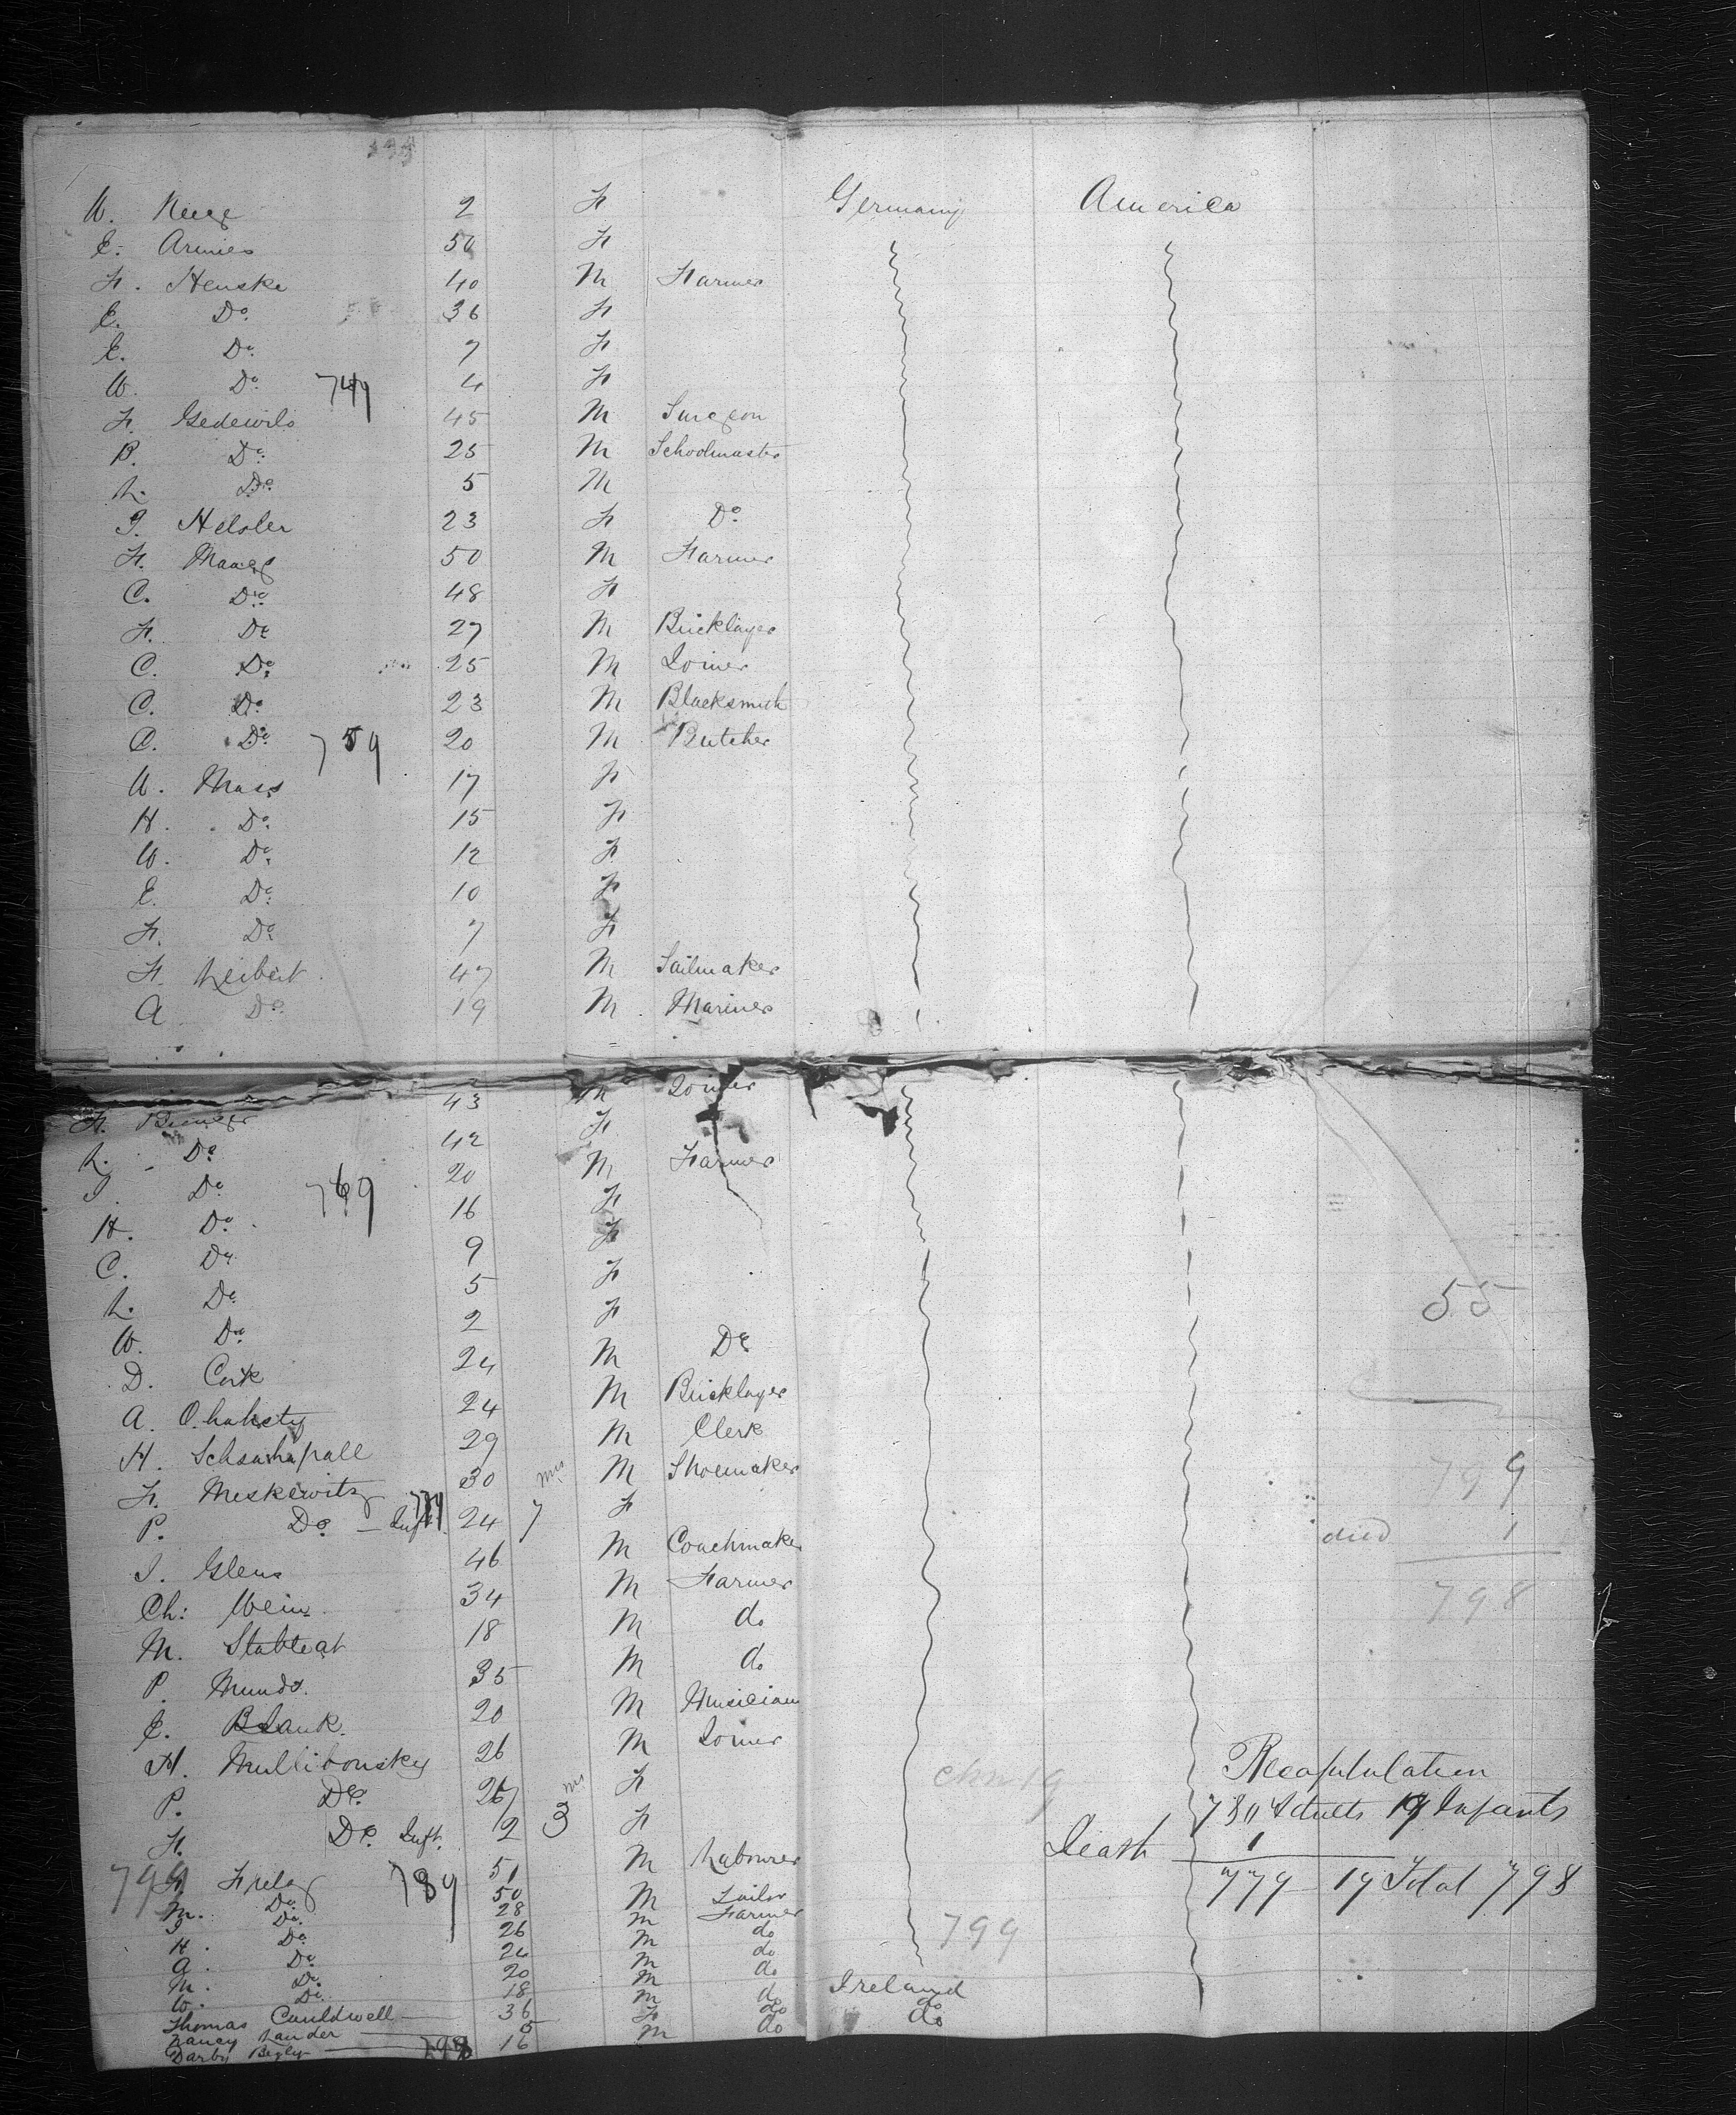 W. 2 F Germany America
E. Armies 50 F
F. Henske 40 M Farmer
E. Do. 36 F
E. Do. 7 F
W. Do. 749 4 F
F. 45 M Surgeon
B. Do. 25 M Schoolmaster
L. Do. 5 M
J. 23 F Do.
F. Maass 50 M Farmer
C. Do. 48 F
F. Do. 27 M Bricklayer
C. Do. 25 M Joiner
C. Do. 23 M Blacksmith
C. Do. 759 20 M Butcher
W. Mass 17 F
H. Do. 15 F
W. Do. 12 F
E. Do. 10 F
F. Do. 7 F
F. Leibert 47 M Sailmaker
A Do. 19 M Mariner
F. 43 M Joiner
L. Do. 42 F
J. Do. 769 20 M Farmer
H. Do. 16 F
C. Do. 9 F
L. Do. 5 F
W. Do. 2 F
D. Cork 24 M Do.
A. 24 M Bricklayer
H. 29 M Clerk
F. Meskewitz 30 mos M Shoemaker
P. Do. Inft. 779 24 7 F
J. Glens 46 M Coachmaker
Ch: Wein 34 M Farmer
M. 18 M do
P. Mundo. 35 M do
E. Blank. 20 M Musician
H. Mullibonsky 26 M Joiner
P. Do. 26 ms F
F. Do. Inft. 2 3 F
799 F. 789 51 M Labourer
M. Do. 50 M Sailor
J. Do. 28 M Farmer
H. Do. 26 M do
A. Do. 24 M do
M. Do. 20 M do
W. Do. 18 M do
Thomas Cauldwell 36 do Ireland
Nancy Lander 5 F do do
Darby Begley 798 16 M do do
55
799
died 1
798
Recapitulation
780 Adults 19 Infants
Death 1
779 19 Total 798
799